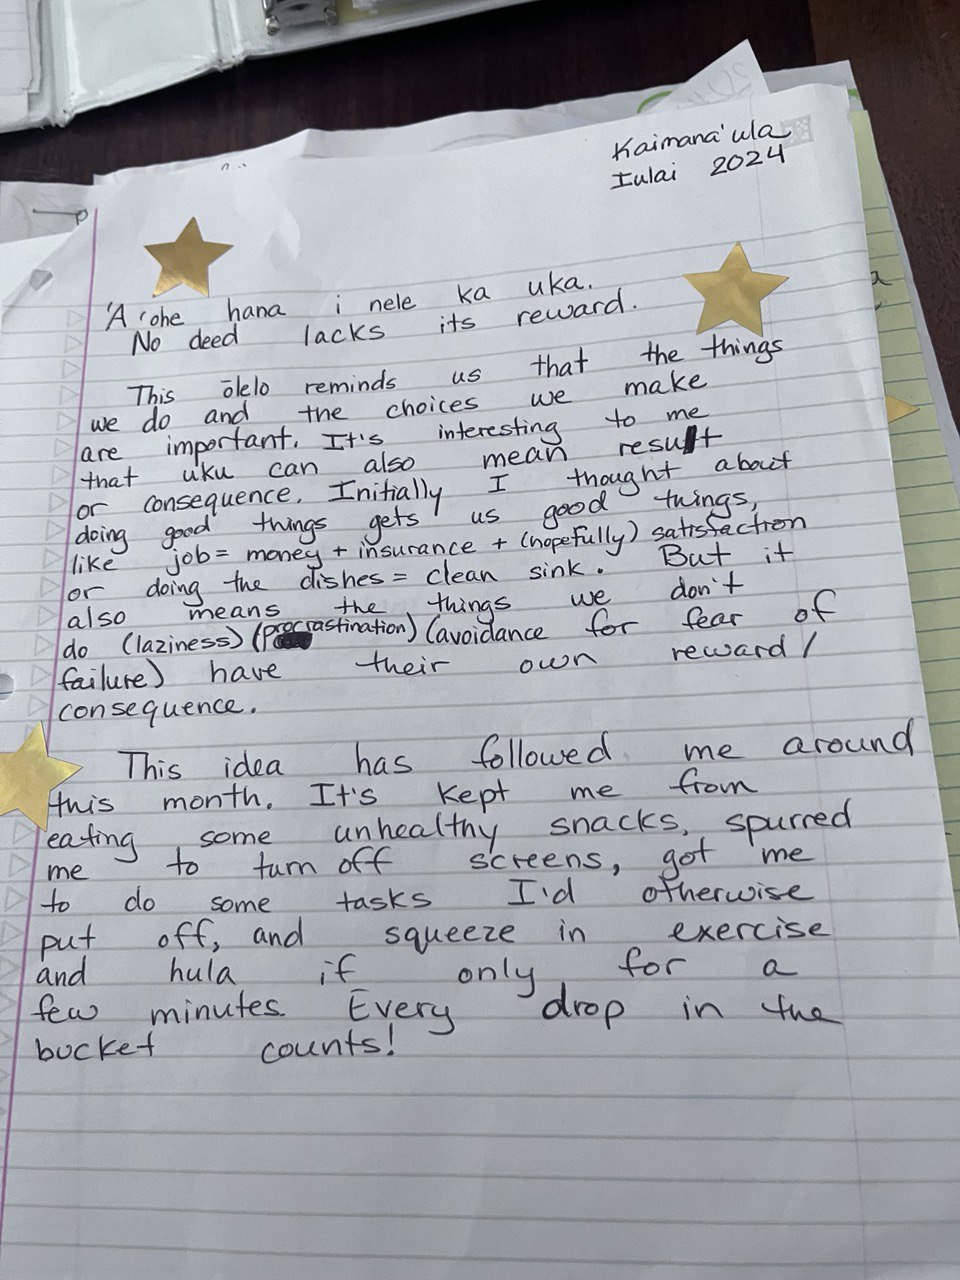 Kaimana'ula
Iulai 2024
'A'ohe hana i nele ka uka.
No deed lacks its reward.
This ōlelo reminds us that the things
we do and the choices we make
are important. It's interesting to me
that uku can also mean result
or consequence. Initially I thought about
doing good things gets us good things,
like job = money + insurance + (hopefully) satisfaction
or doing the dishes = clean sink. But it
also means the things we don't
do (laziness) (procrastination) (avoidance for fear of
failure) have their own reward/
consequence.
This idea has followed me around
this month. It's kept me from
eating some unhealthy snacks, spurred
me to turn off screens, got me
to do some tasks I'd otherwise
put off, and squeeze in exercise
and hula if only for a
few minutes. Every drop in the
bucket counts!